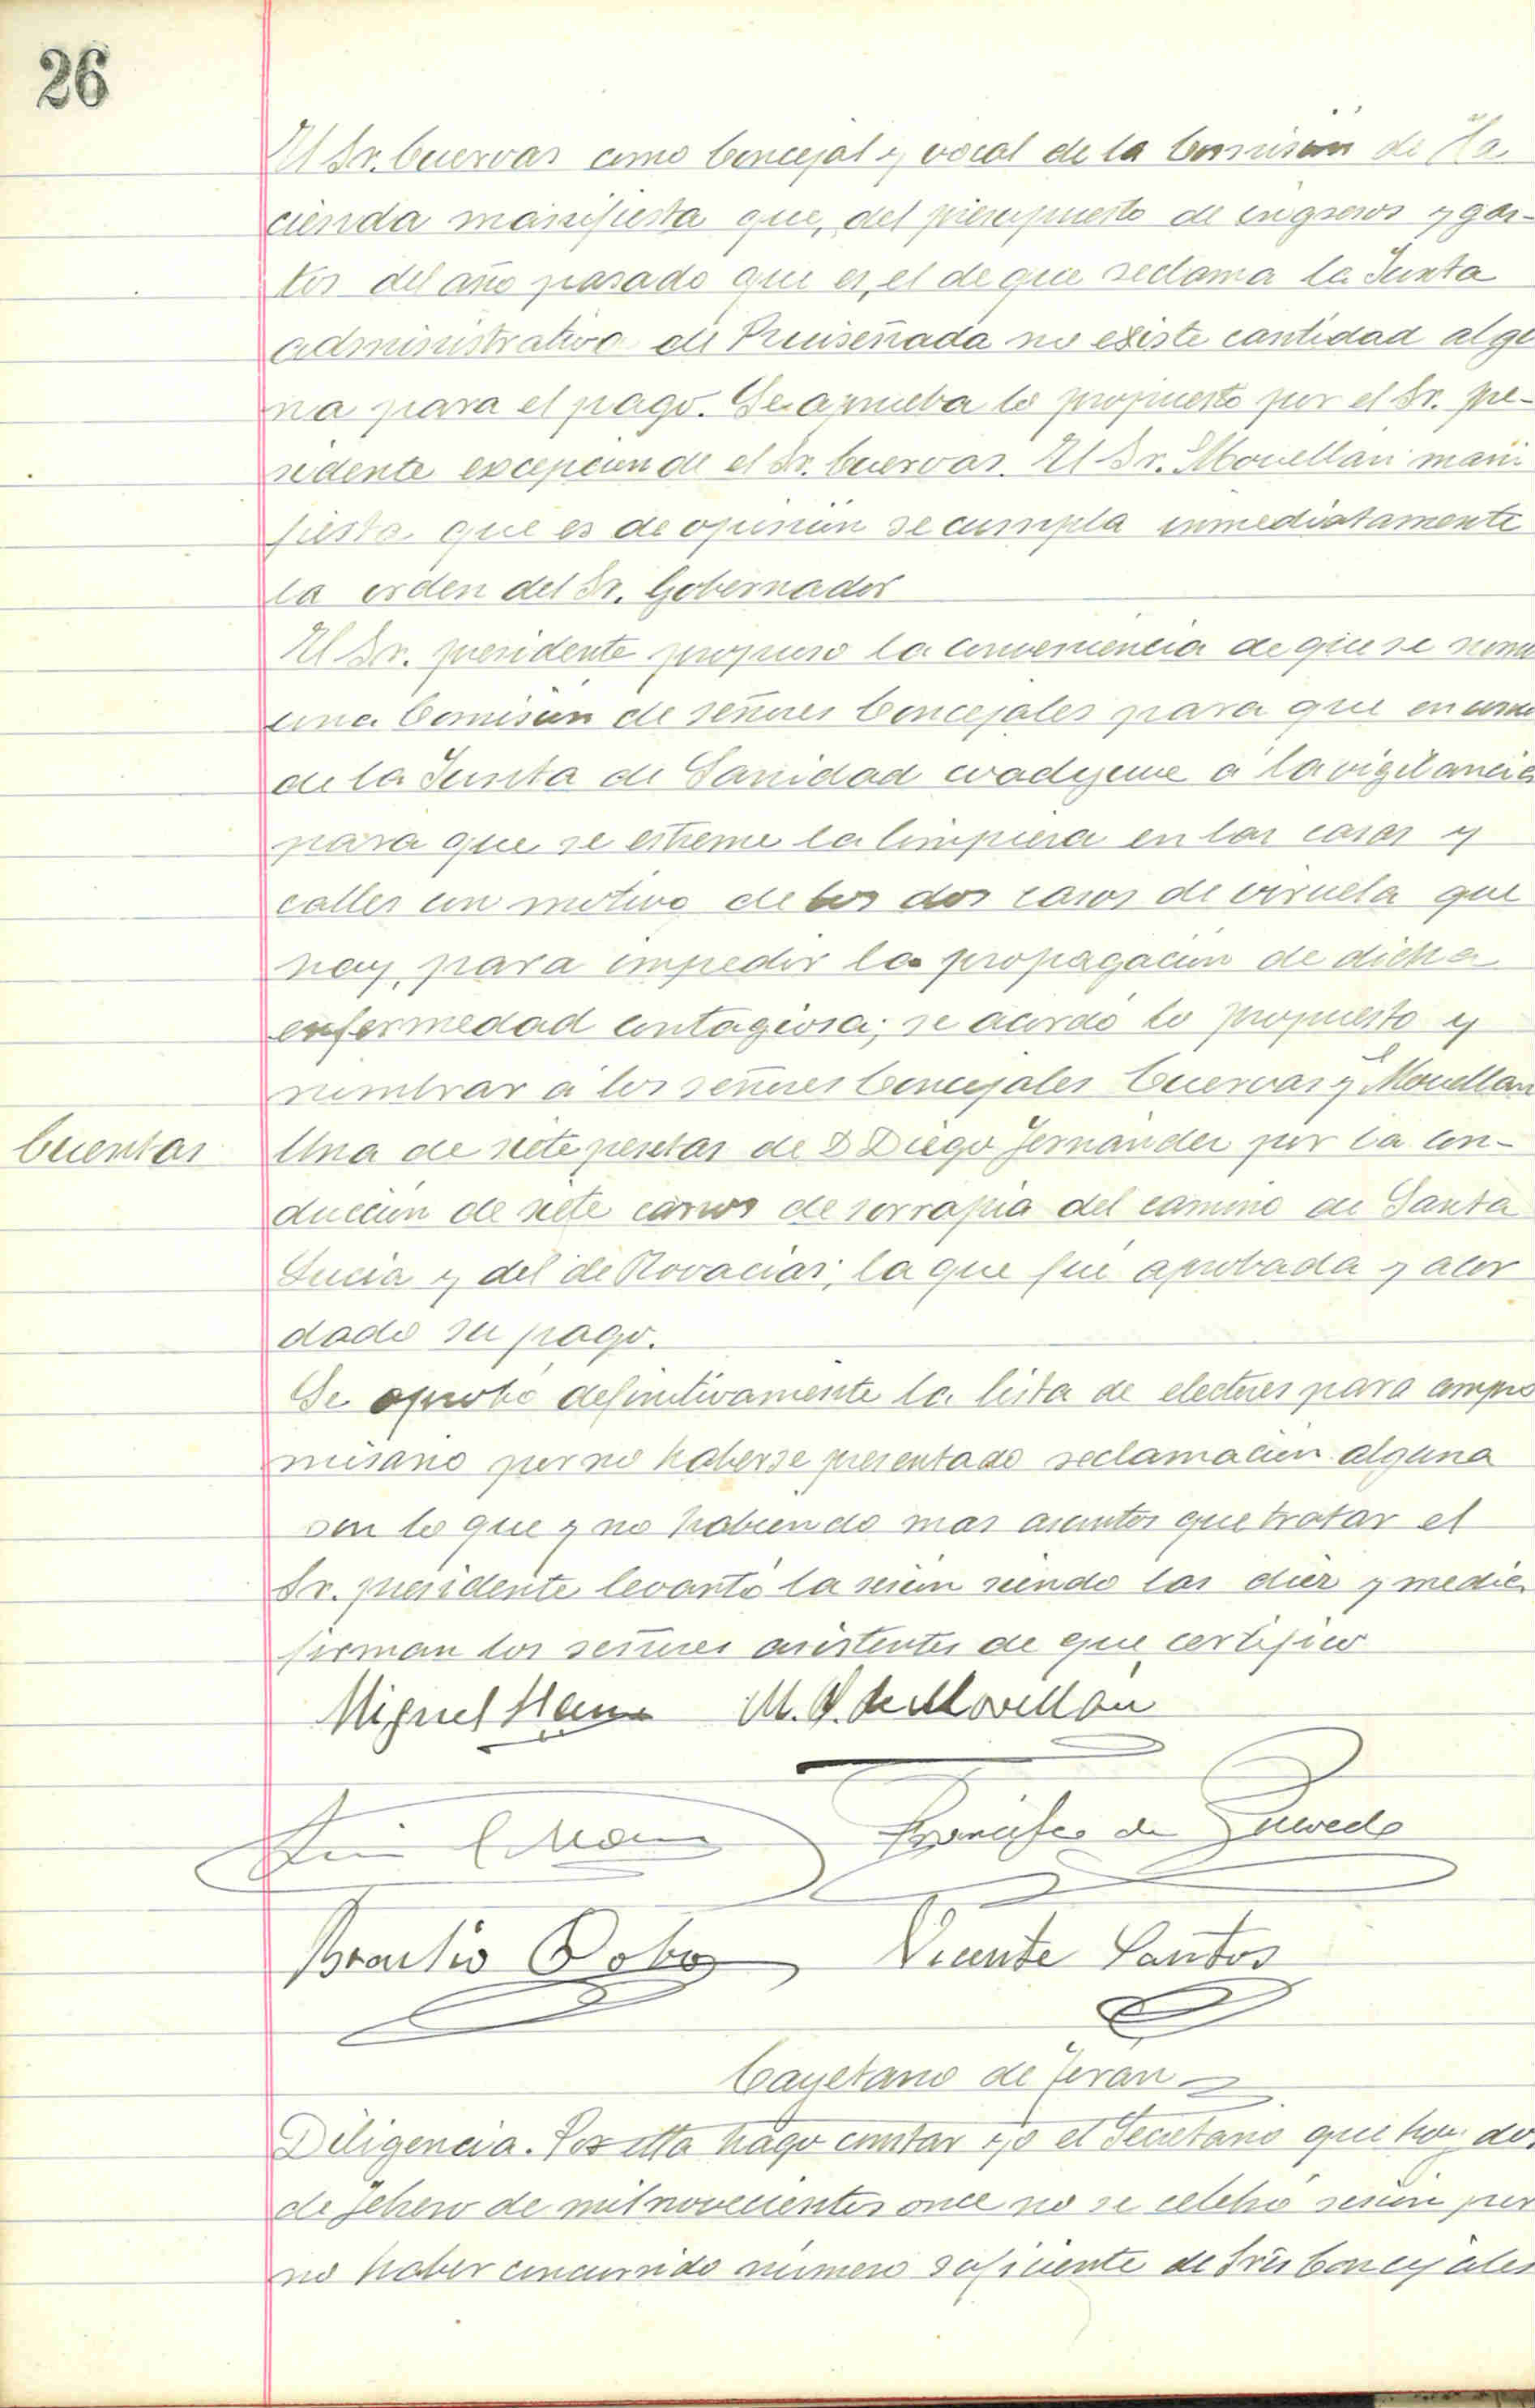 26
El Sr. Cuervas como Concejal y vocal de la Comisión de Ha
cienda manifiesta que, del presupuesto de ingresos y gas-
tos del año pasado que es, el de que reclama la Junta
administrativa de Ruiseñada no existe cantidad algu
na para el pago. Se aprueba lo propuesto por el Sr. pre-
sidente excepcion de el Sr. Cuervas. El Sr. Movellan mani
fiesta que es de opinión se cumpla inmediatamente
la orden del Sr. Gobernador
El Sr. presidente propuso la conveniencia de que se
una Comisión de señores Concejales para que en
de la Junta de Sanidad coadyuve á la vigilancia
para que se estreme la limpieza en las casas y
calles con motivo de los dos casos de viruela que
hay, para impedir la propagación de dicha
enfermedad contagiosa; se acordó lo propuesto y
nombrar á los señores Concejales Cuervas y Movellan
Cuentas
Una de siete pesetas de D Diego Fernández por la con-
ducción de siete carros de sorrapia del camino de Santa
Lucia y del de Rovacias; la que fué aprobada y acor
dado su pago.
Se aprobó definitivamente la lista de electores para compro
misario por no haberse presentado reclamación alguna
con lo que y no habiendo mas asuntos que tratar el
Sr. presidente levantó la sesión siendo las diez y media
firman los señores asistentes de que certifico
Miguel M. S. de Movellán
Francisco de Quevedo
Braulio Cobo Vicente Santos
Cayetano de Teran
Diligencia. Por esta hago constar yo el Secretario que hoy dos
de febrero de mil novecientos once no se celebró sesión por
no haber concurrido número suficiente de Sres Concejales